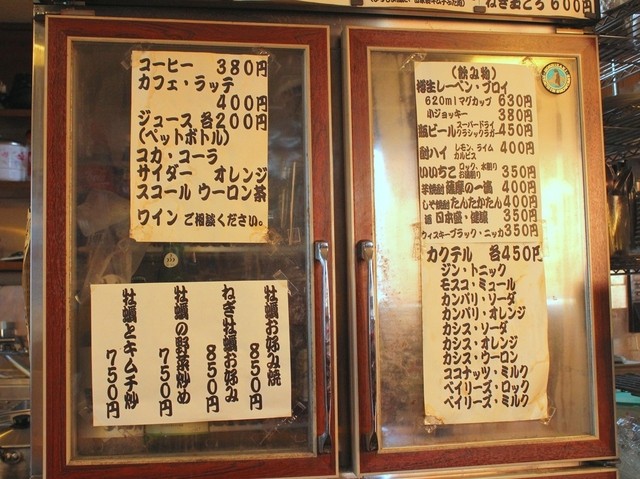 ねぎまぐろ 600円
コーヒー 380円
カフェ・ラッテ
400円
ジュース 各200円
(ペットボトル)
コカ・コーラ
サイダー オレンジ
スコール ウーロン茶
ワイン ご相談ください。
牡蠣お好み焼 850円
ねぎ牡蠣お好み 850円
牡蠣の野菜炒め 750円
牡蠣とキムチ炒 750円
(飲み物)
樽生レーベン・ブロイ
620mlマグカップ 630円
小ジョッキー 380円
瓶ビール スーパードライ クラシックラガー 450円
酎ハイ レモン、ライム カルピス 400円
いいちこ ロック、水割り お湯割り 350円
芋焼酎 薩摩の一滴 400円
しそ焼酎 たんたかたん 400円
日本盛・健醸 350円
ウィスキーブラック・ニッカ 350円
カクテル 各450円
ジン・トニック
モスコ・ミュール
カンパリ・ソーダ
カンパリ・オレンジ
カシス・ソーダ
カシス・オレンジ
カシス・ウーロン
ココナッツ・ミルク
ベイリーズ・ロック
ベイリーズ・ミルク